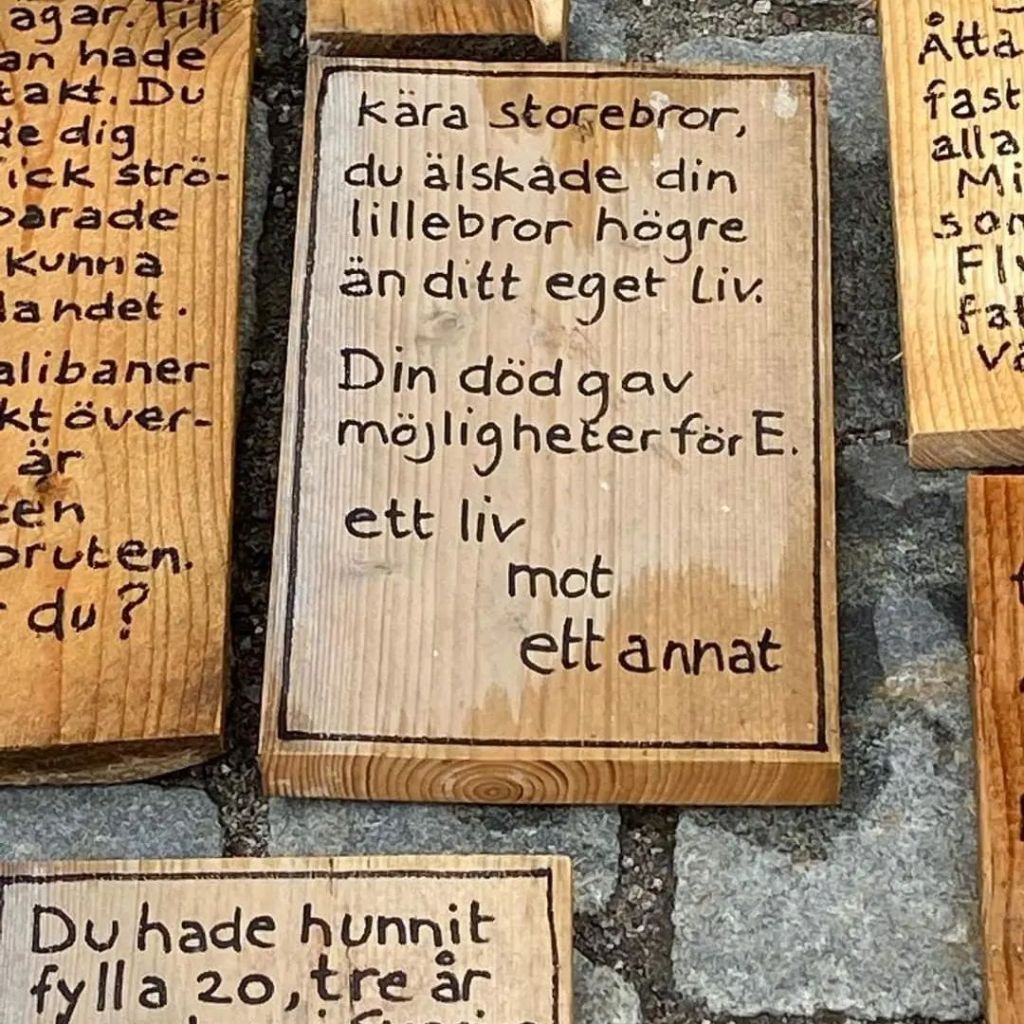 agar. Till
an hade
takt. Du
de dig
ick strö-
parade
kunna
landet.
alibaner
kt över-
är
ten
bruten.
du?
kära storebror,
du älskade din
lillebror högre
än ditt eget liv.
Din död gav
möjligheter för E.
ett liv
mot
ett annat
Åtta
fast
alla
Mi
som
Fly
fat
vä
Du hade hunnit
fylla 20, tre år